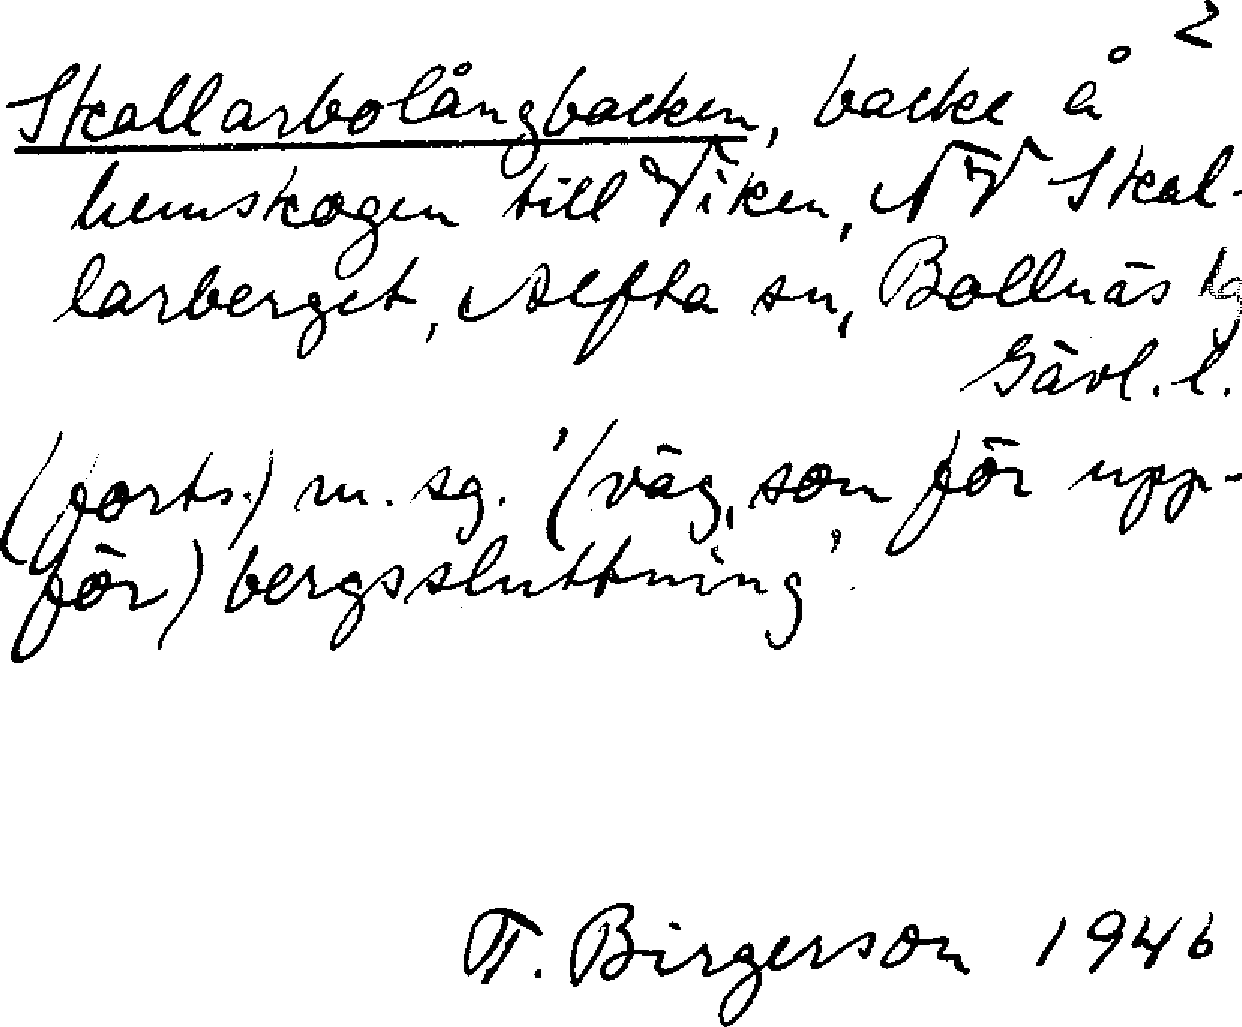 2
Skallarbolångbacken, backe å
hemskogen till Viken, NV Skal-
larberget, Alfta sn, Bollnäs tg
Gävl. l.
(forts.) m. sg. '(väg, som för upp-
för) bergssluttning'.
F. Birgerson 1946